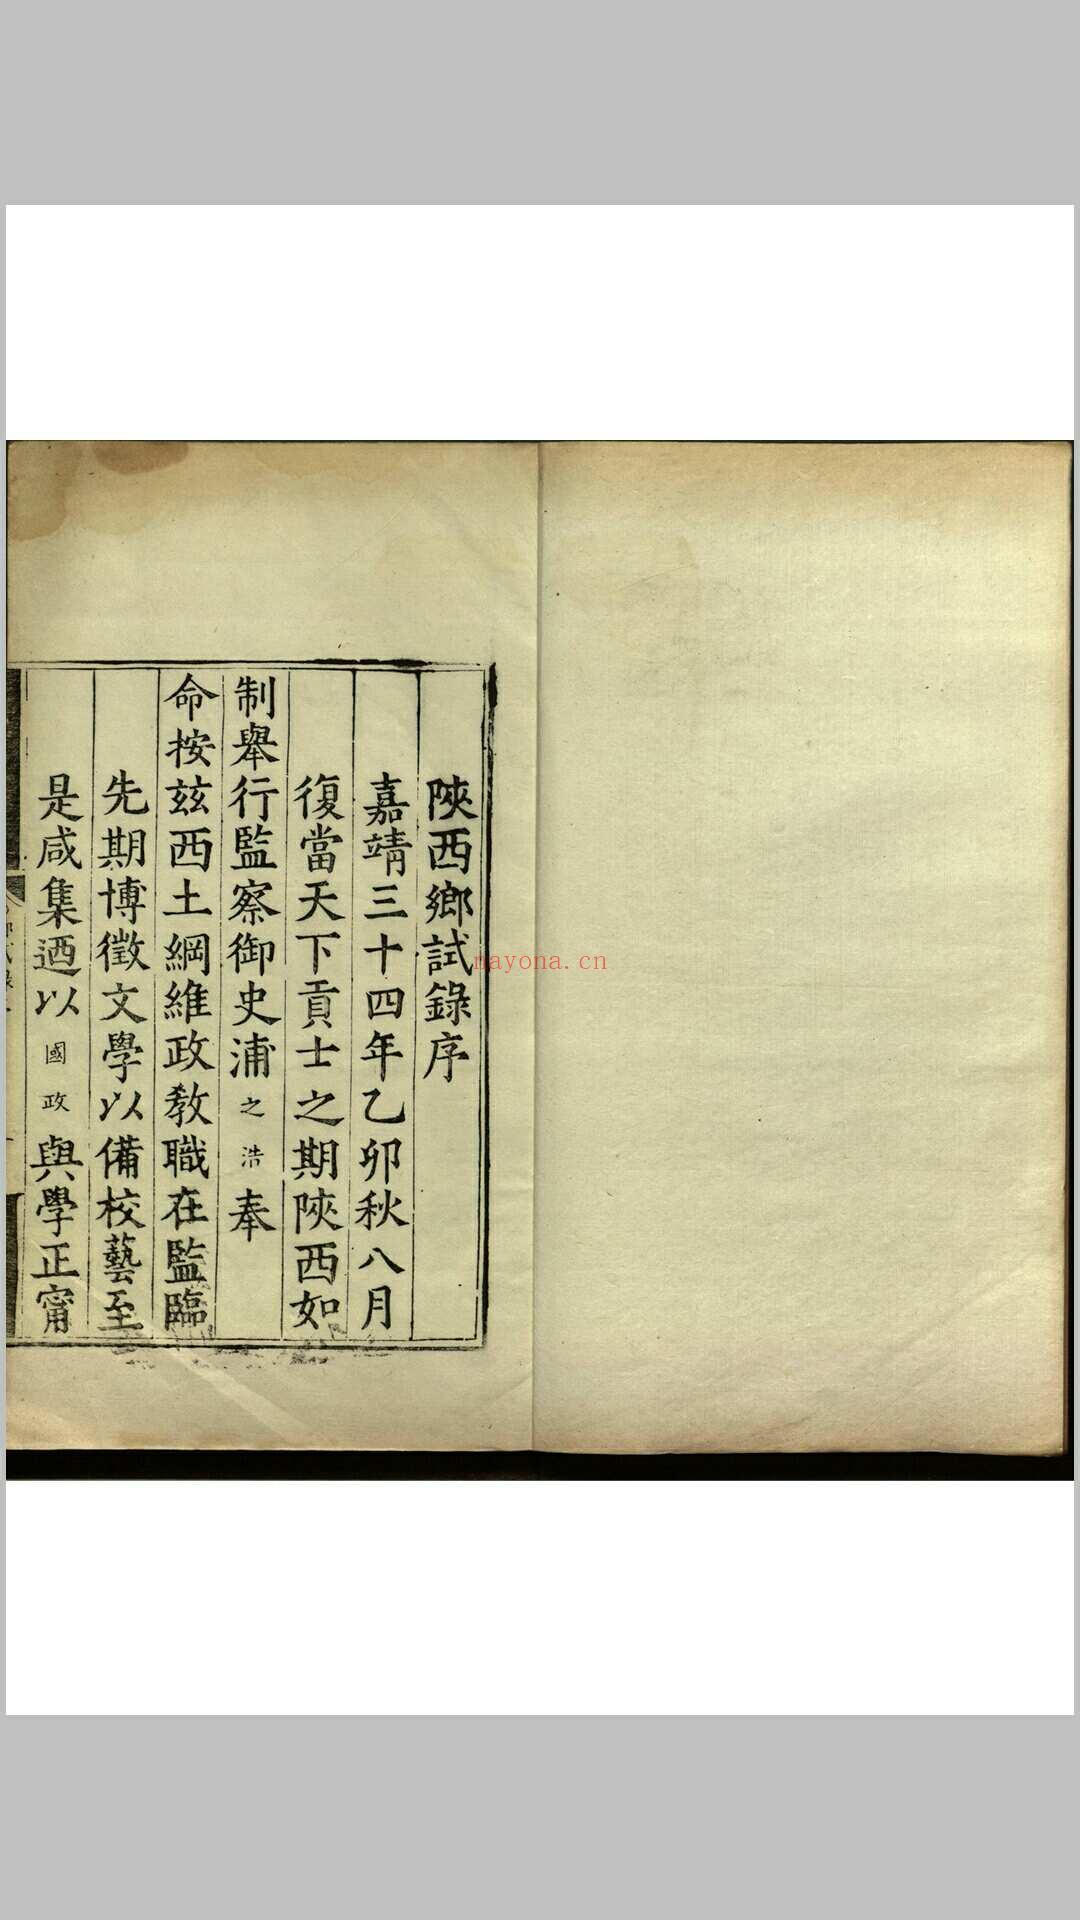 陜西鄉試錄序
嘉靖三十四年乙卯秋八月
復當天下貢士之期陜西如
制舉行監察御史浦之浩奉
命按茲西土綱維政教職在監臨
先期博徵文學以備校藝至
是咸集迺以國政與學正甯
nayona.cn